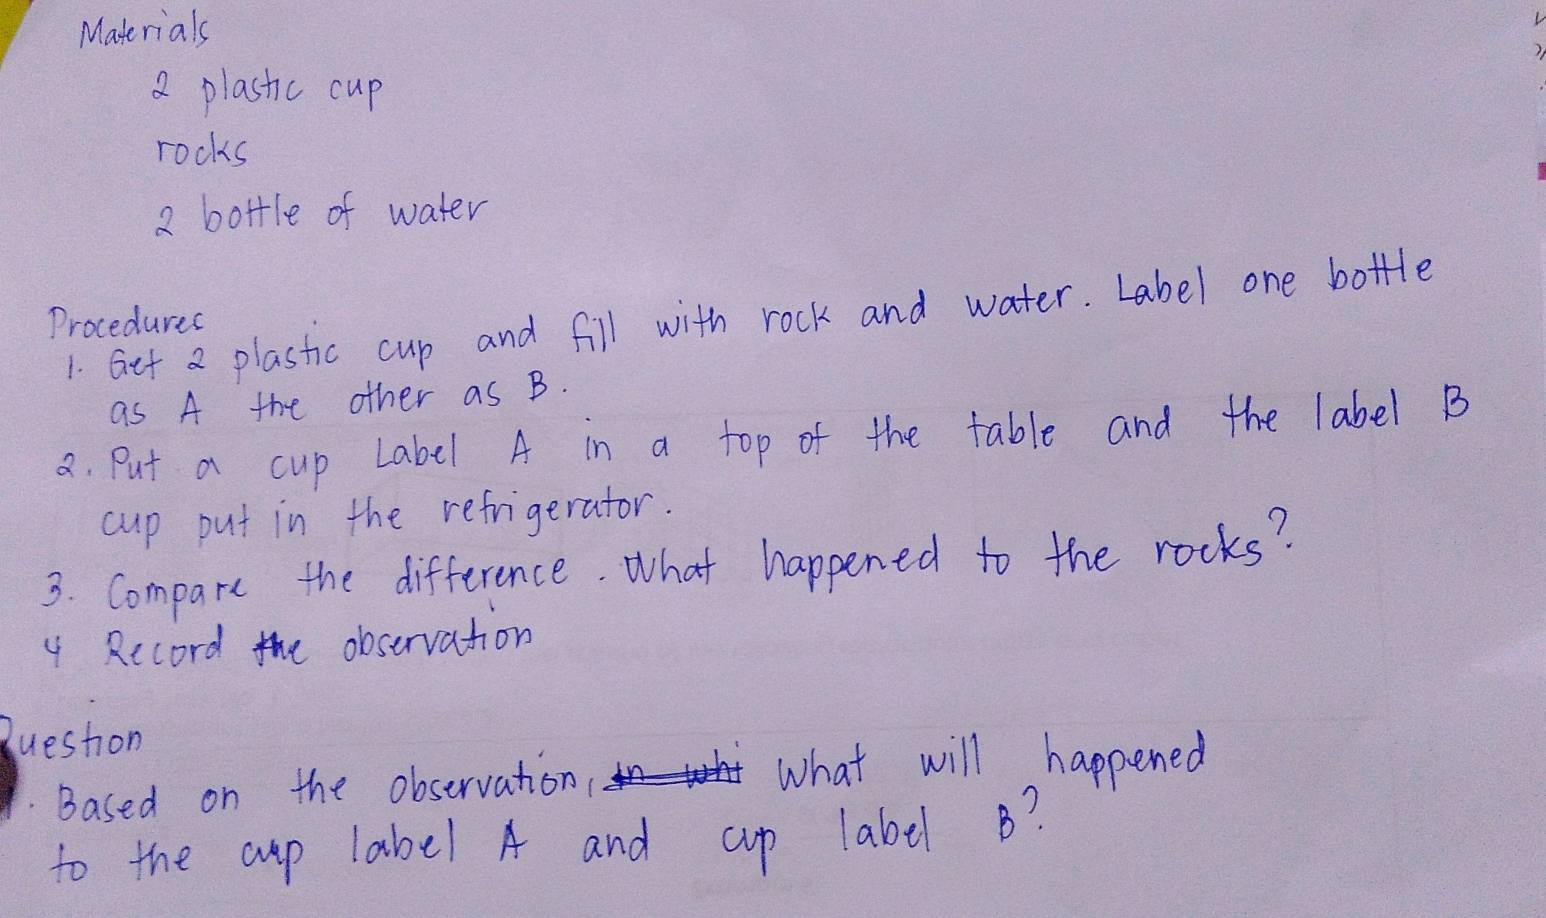 Materials
2 plastic cup
rocks
2 bottle of water
Procedures
1. Get 2 plastic cup and fill with rock and water. Label one bottle
as A the other as B.
2. Put a cup Label A in a top of the table and the label B
cup put in the refrigerator.
3. Compare the difference. What happened to the rocks?
4 Record the observation
Question
. Based on the observation, in whi what will happened
to the cup label A and cup label B?